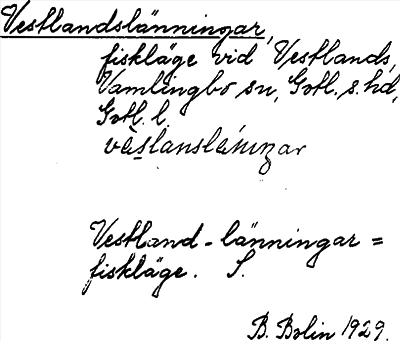 Vestlandslänningar,
fiskläge vid Vestlands,
Vamlingbo sn, Gotl. s. hd,
Gotl. l.
väslanslänıŋar
Vestland-länningar =
fiskläge. S.
B. Bolin 1929.